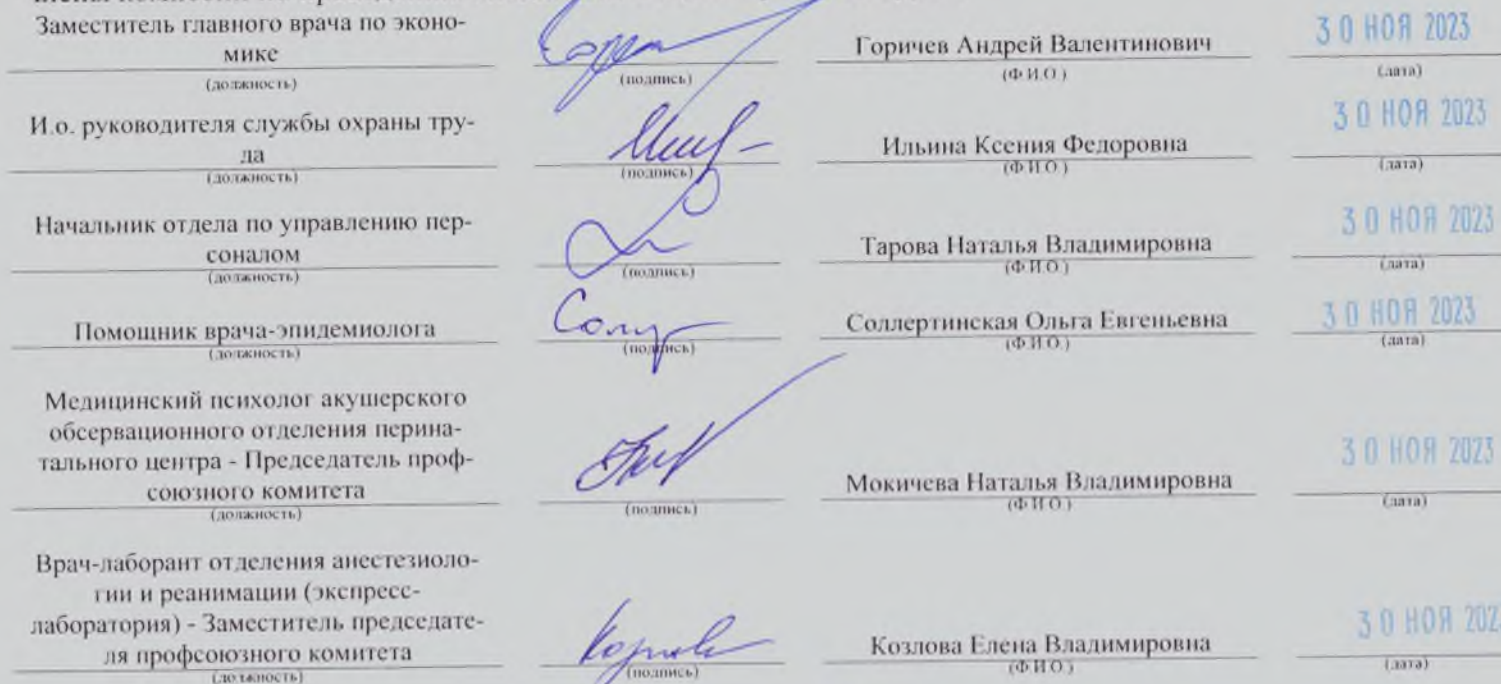 Заместитель главного врача по эконо-
мике
Горичев Андрей Валентинович
30 НОЯ 2023
(должность)
(подпись)
(Ф.И.О.)
(дата)
И.о. руководителя службы охраны тру-
да
Ильина Ксения Федоровна
30 НОЯ 2023
(должность)
(подпись)
(Ф.И.О.)
(дата)
Начальник отдела по управлению пер-
соналом
Тарова Наталья Владимировна
30 НОЯ 2023
(должность)
(подпись)
(Ф.И.О.)
(дата)
Помощник врача-эпидемиолога
Соллертинская Ольга Евгеньевна
30 НОЯ 2023
(должность)
(подпись)
(Ф.И.О.)
(дата)
Медицинский психолог акушерского
обсервационного отделения перина-
тального центра - Председатель проф-
союзного комитета
Мокичева Наталья Владимировна
30 НОЯ 2023
(должность)
(подпись)
(Ф.И.О.)
(дата)
Врач-лаборант отделения анестезиоло-
гии и реанимации (экспресс-
лаборатория) - Заместитель председате-
ля профсоюзного комитета
Козлова Елена Владимировна
30 НОЯ 202
(должность)
(подпись)
(Ф.И.О.)
(дата)